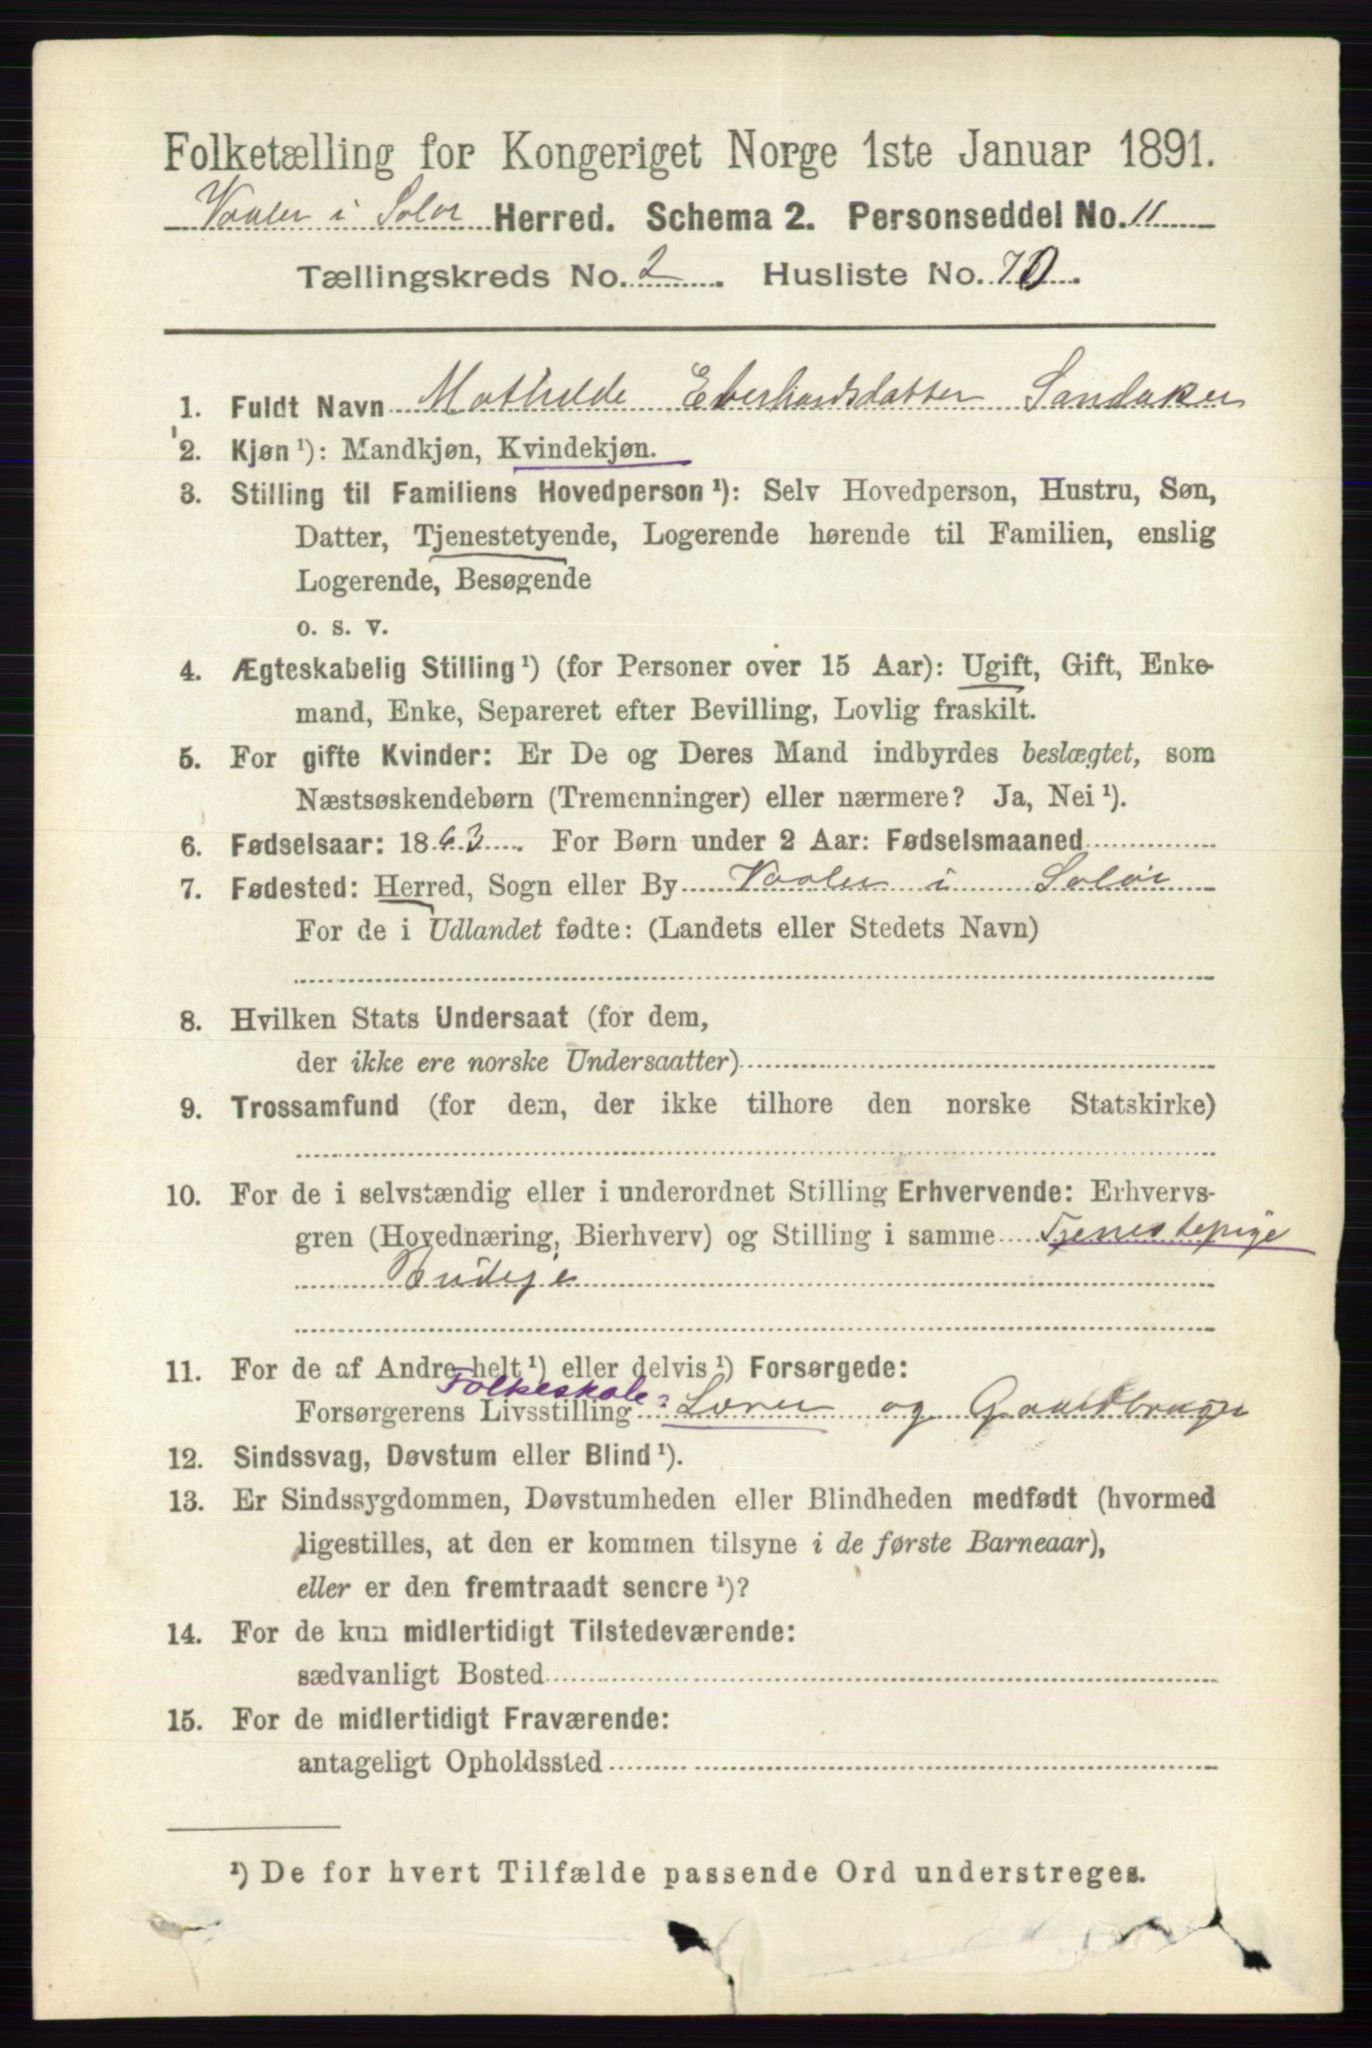 Folketælling for Kongeriget Norge 1ste Januar 1891.
Vaaler i Solør Herred. Schema 2. Personseddel No. 11
Tællingskreds No. 2. Husliste No. 70.
1. Fuldt Navn Mathilde Eberhardsdatter Sandaker
2. Kjøn ¹): Mandkjøn, Kvindekjøn.
3. Stilling til Familiens Hovedperson ¹): Selv Hovedperson, Hustru, Søn,
Datter, Tjenestetyende, Logerende hørende til Familien, enslig
Logerende, Besøgende
o. s. v.
4. Ægteskabelig Stilling ¹) (for Personer over 15 Aar): Ugift, Gift, Enke-
mand, Enke, Separeret efter Bevilling, Lovlig fraskilt.
5. For gifte Kvinder: Er De og Deres Mand indbyrdes beslægtet, som
Næstsøskendebørn (Tremenninger) eller nærmere? Ja, Nei ¹).
6. Fødselsaar: 1863. For Børn under 2 Aar: Fødselsmaaned
7. Fødested: Herred, Sogn eller By Vaaler i Solør
For de i Udlandet fødte: (Landets eller Stedets Navn)
8. Hvilken Stats Undersaat (for dem,
der ikke ere norske Undersaatter)
9. Trossamfund (for dem, der ikke tilhøre den norske Statskirke)
10. For de i selvstændig eller i underordnet Stilling Erhvervende: Erhvervs-
gren (Hovednæring, Bierhverv) og Stilling i samme Tjenestepige
Budeje
11. For de af Andre helt ¹) eller delvis ¹) Forsørgede:
Folkeskole-
Forsørgerens Livsstilling Lærer og Gaardbruger
12. Sindssvag, Døvstum eller Blind ¹).
13. Er Sindssygdommen, Døvstumheden eller Blindheden medfødt (hvormed
ligestilles, at den er kommen tilsyne i de første Barneaar),
eller er den fremtraadt senere ¹)?
14. For de kun midlertidigt Tilstedeværende:
sædvanligt Bosted
15. For de midlertidigt Fraværende:
antageligt Opholdssted
¹) De for hvert Tilfælde passende Ord understreges.